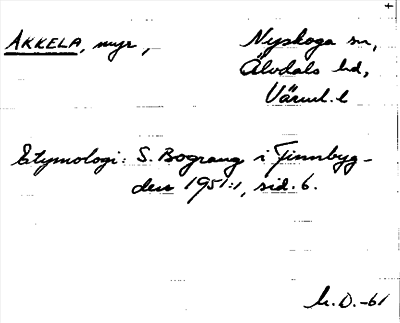 AKKELA, myr, Nyskoga sn,
Älvdals hd,
Värml. l
Etymologi: S. Bograng i Finnbyg-
den 1951:1, sid. 6.
M.D. -61